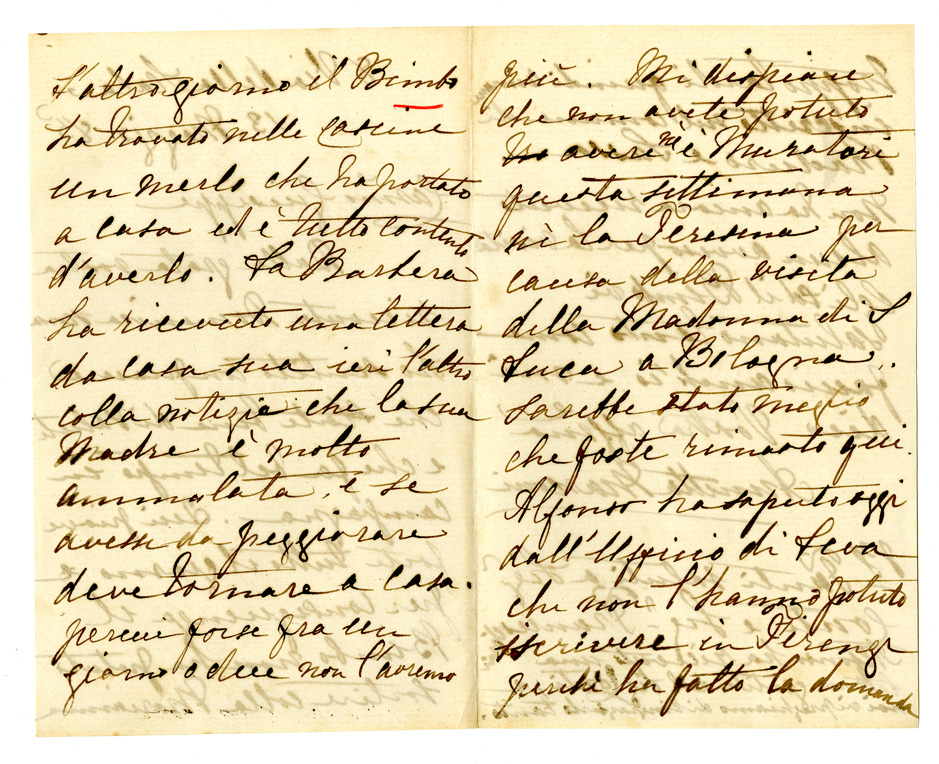 L'altro giorno il Bimbo
ha trovato nelle Cascine
un merlo che ha portato
a casa ed è tutto contento
d'averlo. La Barbera
ha ricevuto una lettera
da casa sua ieri l'altro
colla notizie che la sua
Madre è molto
ammalata, e se
avesse da peggiorare
deve tornare a casa.
percui forse fra un
giorno o due non l'avremo
più. Mi dispiace
che non avete potuto
avere nè i Muratori
questa settimana
nè la Teresina per
causa della visita
della Madonna di S
Luca a Bologna.
Sarebbe stato meglio
che foste rimasto qui.
Alfonso ha saputo oggi
dall'Ufficio di Leva
che non l'hanno potuto
iscrivere in Firenze
perchè ha fatto la domanda